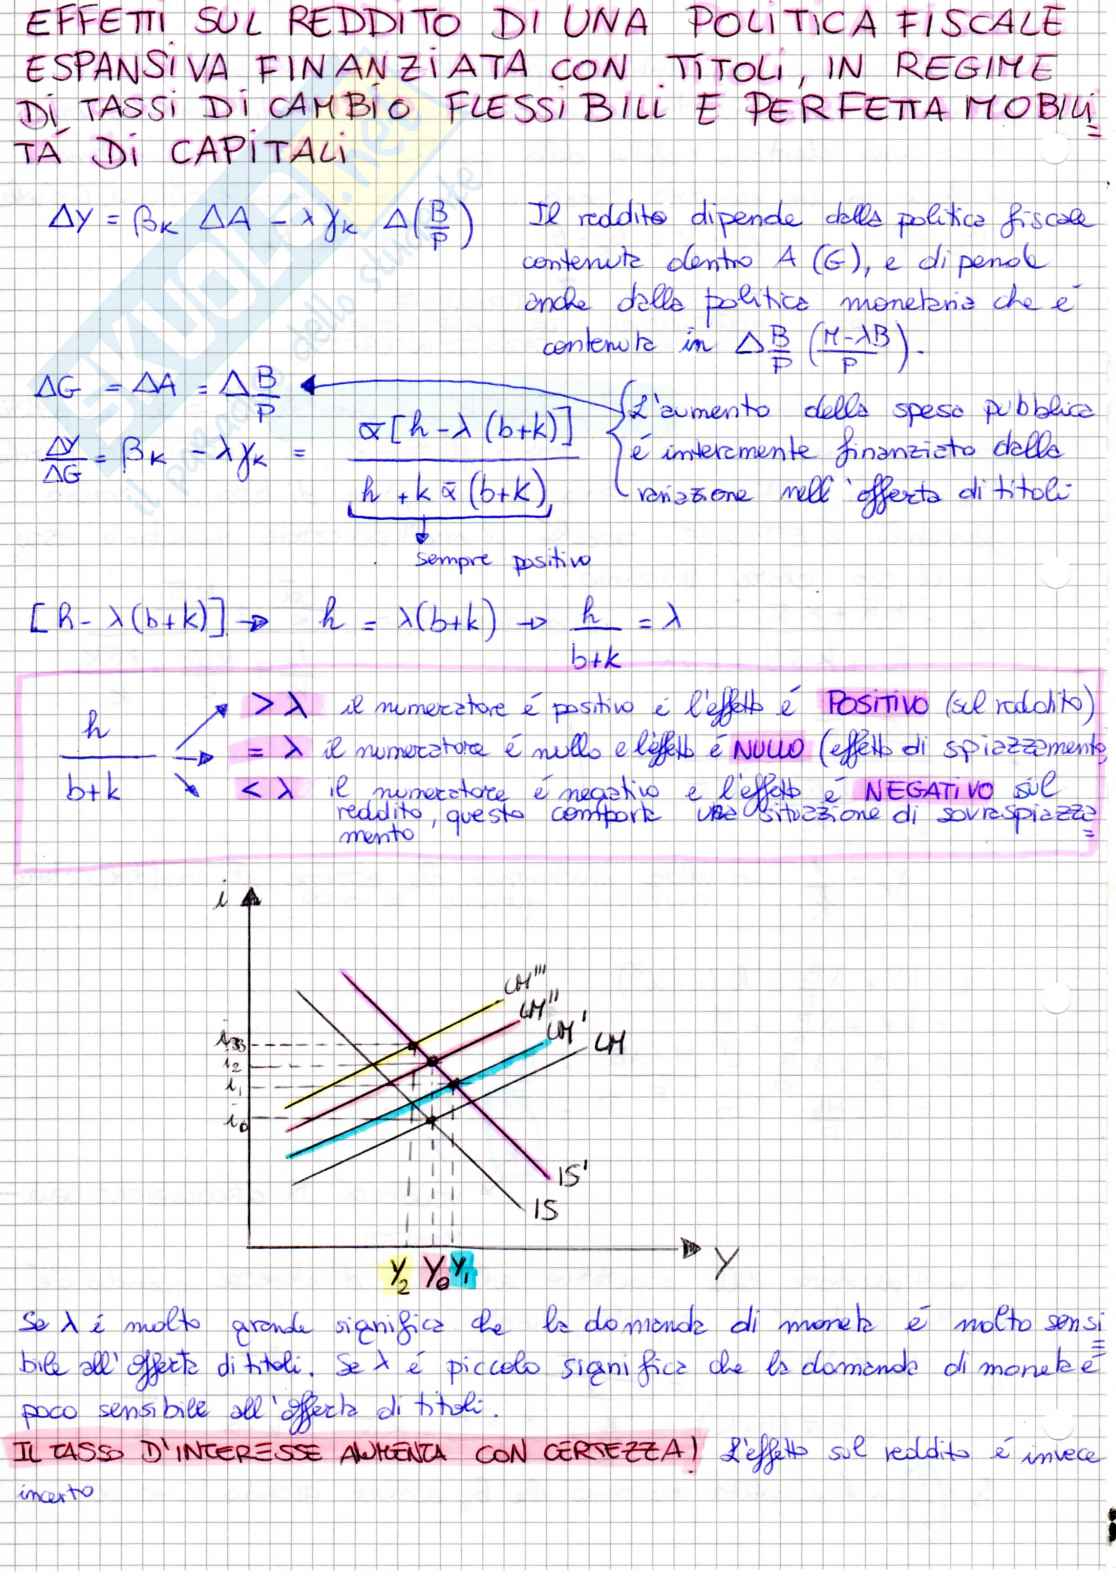 EFFETTI SUL REDDITO DI UNA POLITICA FISCALE
ESPANSIVA FINANZIATA CON TITOLI, IN REGIME
DI TASSI DI CAMBIO FLESSIBILI E PERFETTA MOBILI=
TÁ DI CAPITALI
ΔY = βK ΔA - λγK Δ(B/P)
Il reddito dipende dalla politica fiscale
contenuta dentro A (G), e dipende
anche dalla politica monetaria che é
contenuta in Δ B/P ((M-λB)/P).
ΔG = ΔA = Δ B/P
L'aumento della spesa pubblica
é interamente finanziato dalla
variazione nell'offerta di titoli
ΔY/ΔG = βK - λγK = ᾱ[h-λ(b+k)] / h+kᾱ(b+k)
sempre positivo
[h-λ(b+k)] → h = λ(b+k) → h/(b+k) = λ
h/(b+k)
> λ il numeratore é positivo e l'effetto é POSITIVO (sul reddito)
= λ il numeratore é nullo e l'effetto é NULLO (effetto di spiazzamento
< λ il numeratore é negativo e l'effetto é NEGATIVO sul
reddito, questo comporta una situazione di sovraspiazza=
mento
i
LM'''
LM''
LM'
LM
i3
i2
i1
i0
IS'
IS
Y2 Y0 Y1
Y
Se λ é molto grande significa che la domanda di moneta é molto sensi=
bile all'offerta di titoli. Se λ é piccolo significa che la domanda di moneta é
poco sensibile all'offerta di titoli.
IL TASSO D'INTERESSE AUMENTA CON CERTEZZA! L'effetto sul reddito é invece
incerto
SKUOLA.net
il paradiso dello studente